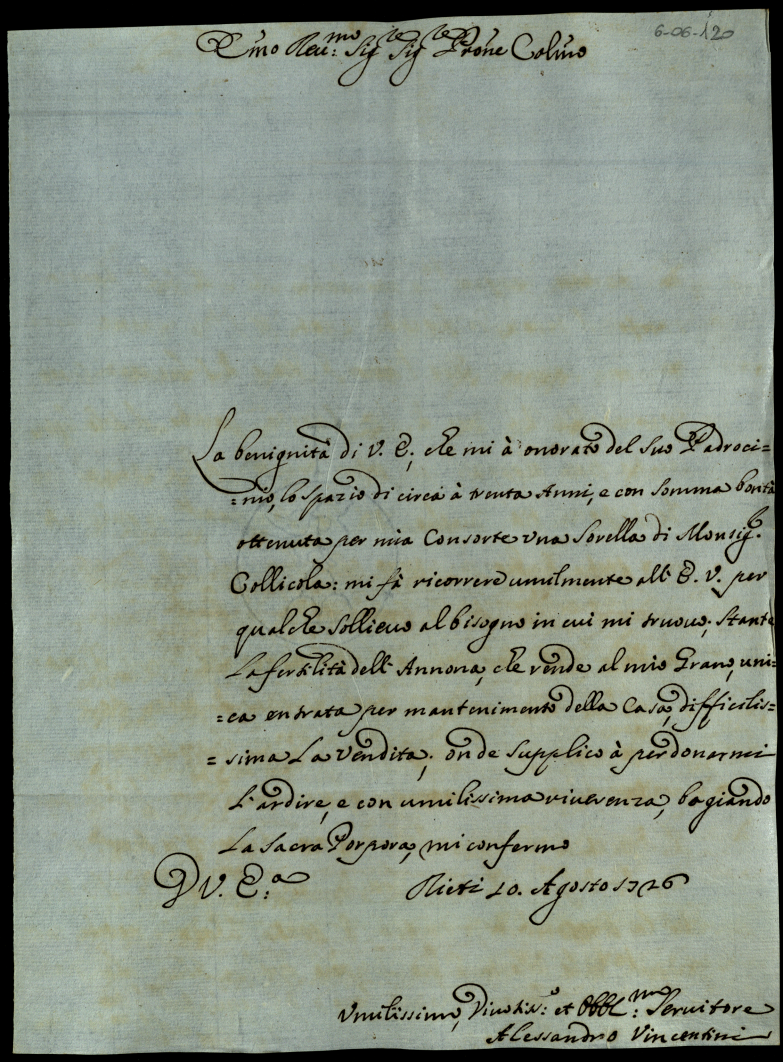 6-06-120
Emo Reu:mo Sigre Sigre Prone Colmo
La benignità di V. E; che mi à onorato del suo Padroci=
=nio, lo spazio di circa à trenta Anni, e con somma bontà
ottenuta per mia Consorte vna Sorella di Monsig.r
Collicola: mi fà ricorrere umilmente all' E. V. per
qualche sollieuo al bisogno in cui mi truouo; stante
la fertilità dell' Annona, che rende al mio Grano, uni=
=ca entrata per mantenimento della Casa, difficilis=
=sima La Vendita; onde supplico à perdonarmi
l'ardire, e con umilissima riuerenza, bagiando
La Sacra Porpora, mi confermo
D V. E:a
Rieti 10. Agosto 1726
Vmilissimo, Diuotiss:o et Obbl:mo Seruitore
Alessandro Vincentini